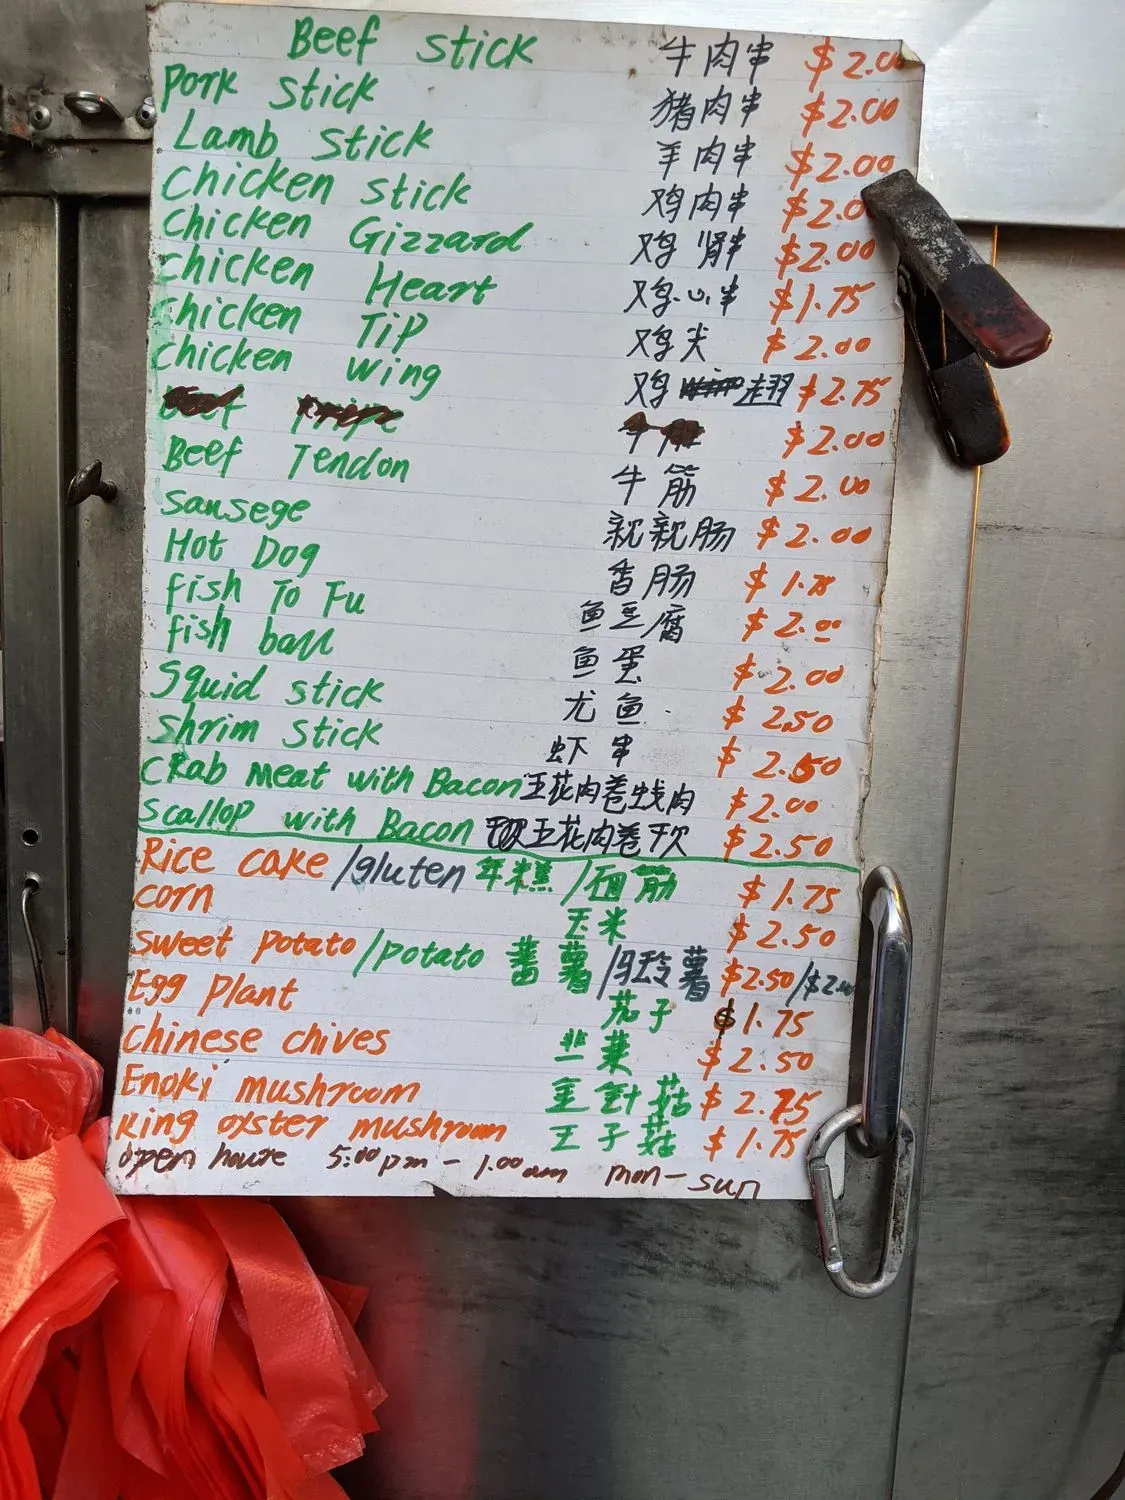 Beef stick 牛肉串 $2.00
Pork stick 猪肉串 $2.00
Lamb stick 羊肉串 $2.00
Chicken stick 鸡肉串 $2.0
Chicken Gizzard 鸡肾串 $2.00
Chicken Heart 鸡心串 $1.75
Chicken Tip 鸡尖 $2.00
Chicken wing 鸡翅 $2.75
$2.00
Beef Tendon 牛筋 $2.00
Sansege 亲亲肠 $2.00
Hot Dog 香肠 $1.75
fish To Fu 鱼豆腐 $2.00
fish ball 鱼蛋 $2.00
Squid stick 尤鱼 $2.50
shrim stick 虾串 $2.50
CRab meat with Bacon 五花肉卷蛙肉 $2.00
Scallop with Bacon 五花肉卷 $2.50
Rice cake/gluten 年糕/面筋 $1.75
corn 玉米 $2.50
sweet potato/potato 蕃薯/玛玲薯 $2.50/$2.00
Egg plant 茄子 $1.75
Chinese chives 韭菜 $2.50
Enoki mushroom 金针菇 $2.75
King oyster mushroom 王子菇 $1.75
open houre 5:00pm - 1:00am mon-sun